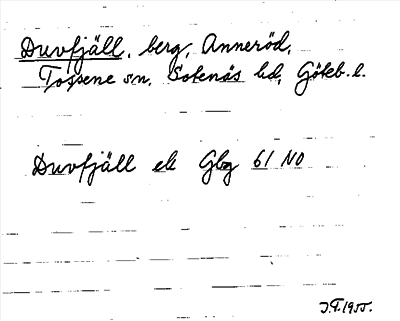 Duvfjäll, berg, Anneröd,
Tossene sn, Sotenäs hd, Göteb. l.
Duvfjäll ek Gbg 61 NO
J.F. 1955.